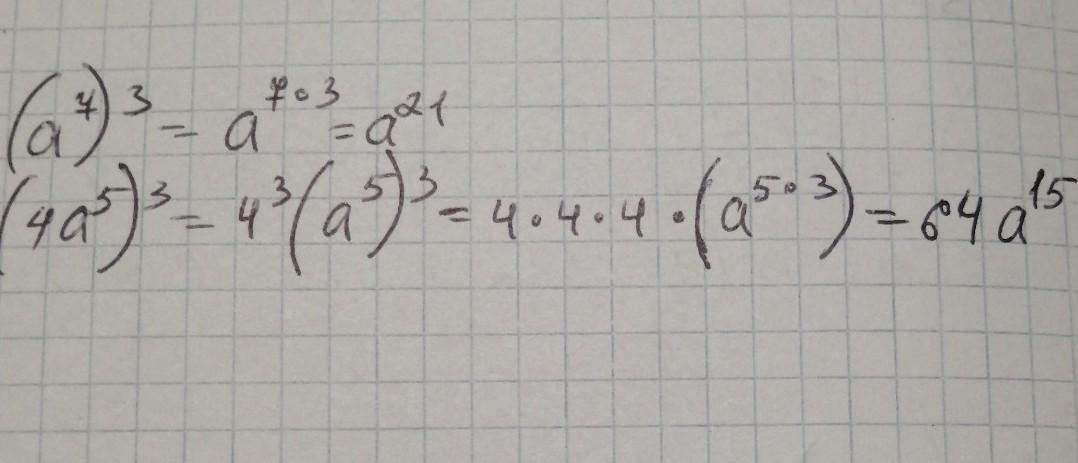 (a⁷)³ = a⁷·³ = a²¹
(4a⁵)³ = 4³(a⁵)³ = 4·4·4·(a⁵·³) = 64a¹⁵